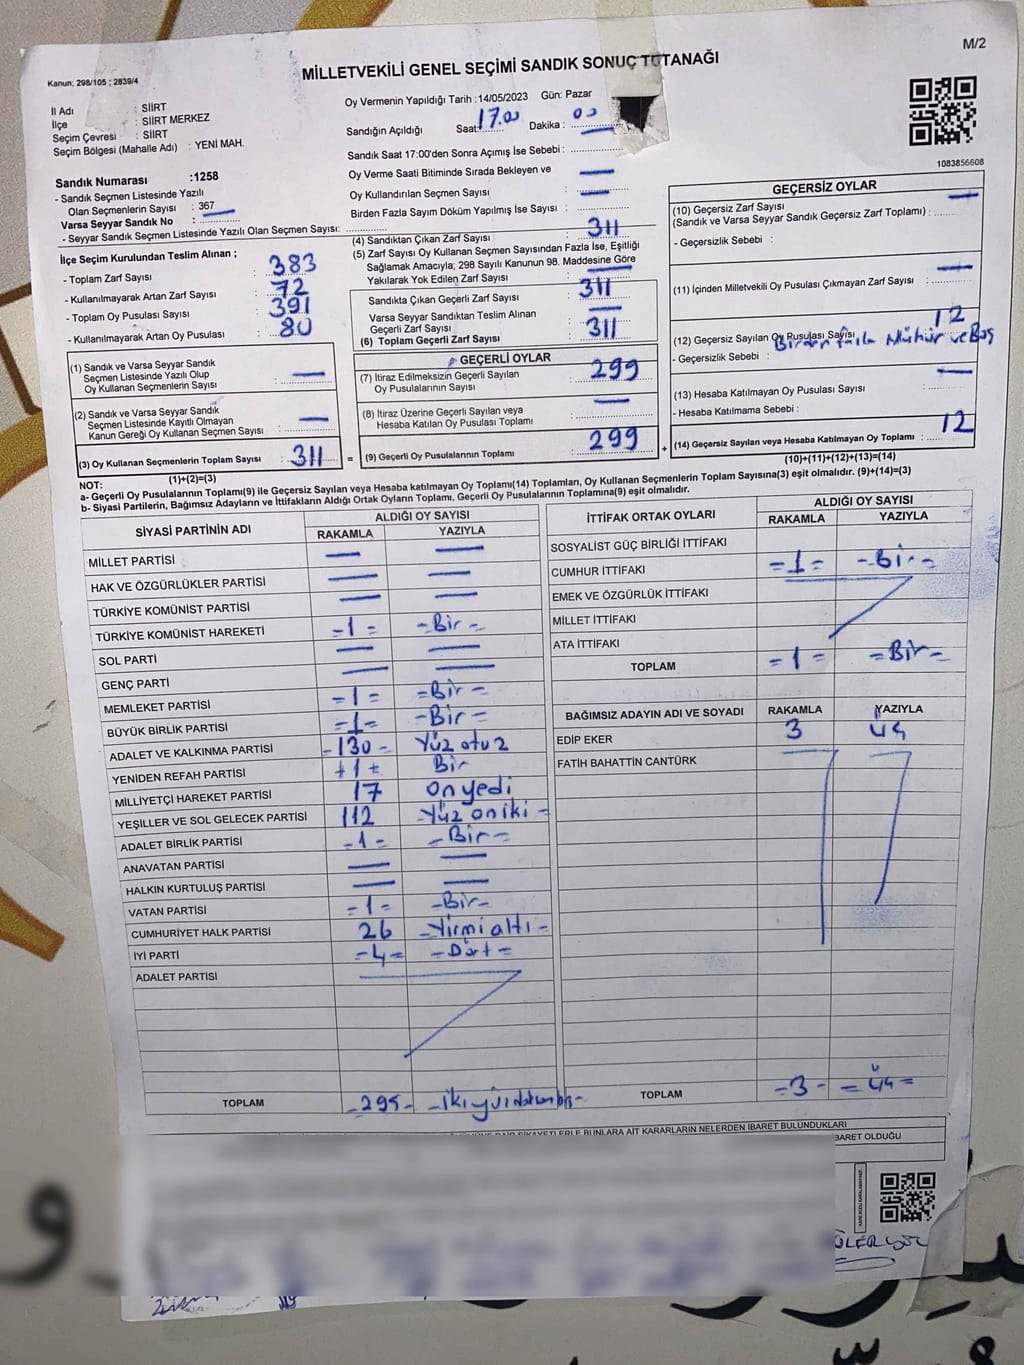 M/2
Kanun; 298/105 ; 2839/4
MİLLETVEKİLİ GENEL SEÇİMİ SANDIK SONUÇ TUTANAĞI
İl Adı : SİİRT
İlçe : SİİRT MERKEZ
Seçim Çevresi : SİİRT
Seçim Bölgesi (Mahalle Adı) : YENİ MAH.
Oy Vermenin Yapıldığı Tarih :14/05/2023 Gün: Pazar
Sandığın Açıldığı Saat: 17.00 Dakika : 00
Sandık Saat 17:00'den Sonra Açımış İse Sebebi :
Oy Verme Saati Bitiminde Sırada Bekleyen ve
Oy Kullandırılan Seçmen Sayısı : —
Birden Fazla Sayım Döküm Yapılmış İse Sayısı :
1083856608
Sandık Numarası :1258
- Sandık Seçmen Listesinde Yazılı
Olan Seçmenlerin Sayısı : 367
Varsa Seyyar Sandık No : —
- Seyyar Sandık Seçmen Listesinde Yazılı Olan Seçmen Sayısı:
İlçe Seçim Kurulundan Teslim Alınan ;
- Toplam Zarf Sayısı : 383
- Kullanılmayarak Artan Zarf Sayısı : 72
- Toplam Oy Pusulası Sayısı : 391
- Kullanılmayarak Artan Oy Pusulası : 80
(1) Sandık ve Varsa Seyyar Sandık
Seçmen Listesinde Yazılı Olup
Oy Kullanan Seçmenlerin Sayısı : —
(2) Sandık ve Varsa Seyyar Sandık
Seçmen Listesinde Kayıtlı Olmayan
Kanun Gereği Oy Kullanan Seçmen Sayısı : —
(3) Oy Kullanan Seçmenlerin Toplam Sayısı : 311 =
(1)+(2)=(3)
(4) Sandıktan Çıkan Zarf Sayısı : 311
(5) Zarf Sayısı Oy Kullanan Seçmen Sayısından Fazla İse, Eşitliği
Sağlamak Amacıyla; 298 Sayılı Kanunun 98. Maddesine Göre
Yakılarak Yok Edilen Zarf Sayısı : —
Sandıkta Çıkan Geçerli Zarf Sayısı : 311
Varsa Seyyar Sandıktan Teslim Alınan
Geçerli Zarf Sayısı : —
(6) Toplam Geçerli Zarf Sayısı : 311
GEÇERLİ OYLAR
(7) İtiraz Edilmeksizin Geçerli Sayılan
Oy Pusulalarının Sayısı : 299
(8) İtiraz Üzerine Geçerli Sayılan veya
Hesaba Katılan Oy Pusulası Toplamı : —
(9) Geçerli Oy Pusulalarının Toplamı : 299 +
GEÇERSİZ OYLAR
(10) Geçersiz Zarf Sayısı
(Sandık ve Varsa Seyyar Sandık Geçersiz Zarf Toplamı) : —
- Geçersizlik Sebebi :
(11) İçinden Milletvekili Oy Pusulası Çıkmayan Zarf Sayısı : —
(12) Geçersiz Sayılan Oy Pusulası Sayısı 12
- Geçersizlik Sebebi : Birden fazla Mühür ve Boş
(13) Hesaba Katılmayan Oy Pusulası Sayısı : —
- Hesaba Katılmama Sebebi :
(14) Geçersiz Sayılan veya Hesaba Katılmayan Oy Toplamı : 12
(10)+(11)+(12)+(13)=(14)
NOT:
a- Geçerli Oy Pusulalarının Toplamı(9) ile Geçersiz Sayılan veya Hesaba katılmayan Oy Toplamı(14) Toplamları, Oy Kullanan Seçmenlerin Toplam Sayısına(3) eşit olmalıdır. (9)+(14)=(3)
b- Siyasi Partilerin, Bağımsız Adayların ve İttifakların Aldığı Ortak Oyların Toplamı, Geçerli Oy Pusulalarının Toplamına(9) eşit olmalıdır.
SİYASİ PARTİNİN ADI ALDIĞI OY SAYISI
RAKAMLA YAZIYLA
MİLLET PARTİSİ — —
HAK VE ÖZGÜRLÜKLER PARTİSİ — —
TÜRKİYE KOMÜNİST PARTİSİ — —
TÜRKİYE KOMÜNİST HAREKETİ -1= -Bir-
SOL PARTİ — —
GENÇ PARTİ — —
MEMLEKET PARTİSİ -1= =Bir=
BÜYÜK BİRLİK PARTİSİ =1= -Bir=
ADALET VE KALKINMA PARTİSİ -130- Yüz otuz
YENİDEN REFAH PARTİSİ +1+ Bir
MİLLİYETÇİ HAREKET PARTİSİ 17 onyedi
YEŞİLLER VE SOL GELECEK PARTİSİ 112 -Yüz oniki-
ADALET BİRLİK PARTİSİ -1= -Bir=
ANAVATAN PARTİSİ — —
HALKIN KURTULUŞ PARTİSİ — —
VATAN PARTİSİ =1= -Bir-
CUMHURİYET HALK PARTİSİ 26 -Yirmi altı-
İYİ PARTİ -4= -Dört=
ADALET PARTİSİ
TOPLAM -295-
İTTİFAK ORTAK OYLARI ALDIĞI OY SAYISI
RAKAMLA YAZIYLA
SOSYALİST GÜÇ BİRLİĞİ İTTİFAKI
CUMHUR İTTİFAKI =1= -Bir-
EMEK VE ÖZGÜRLÜK İTTİFAKI
MİLLET İTTİFAKI
ATA İTTİFAKI
TOPLAM =1= =Bir=
BAĞIMSIZ ADAYIN ADI VE SOYADI RAKAMLA YAZIYLA
EDİP EKER 3 üç
FATİH BAHATTİN CANTÜRK
TOPLAM -3- =üç=
ŞİKAYETLERLE BUNLARA AİT KARARLARIN NELERDEN İBARET BULUNDUKLARI
İBARET OLDUĞU